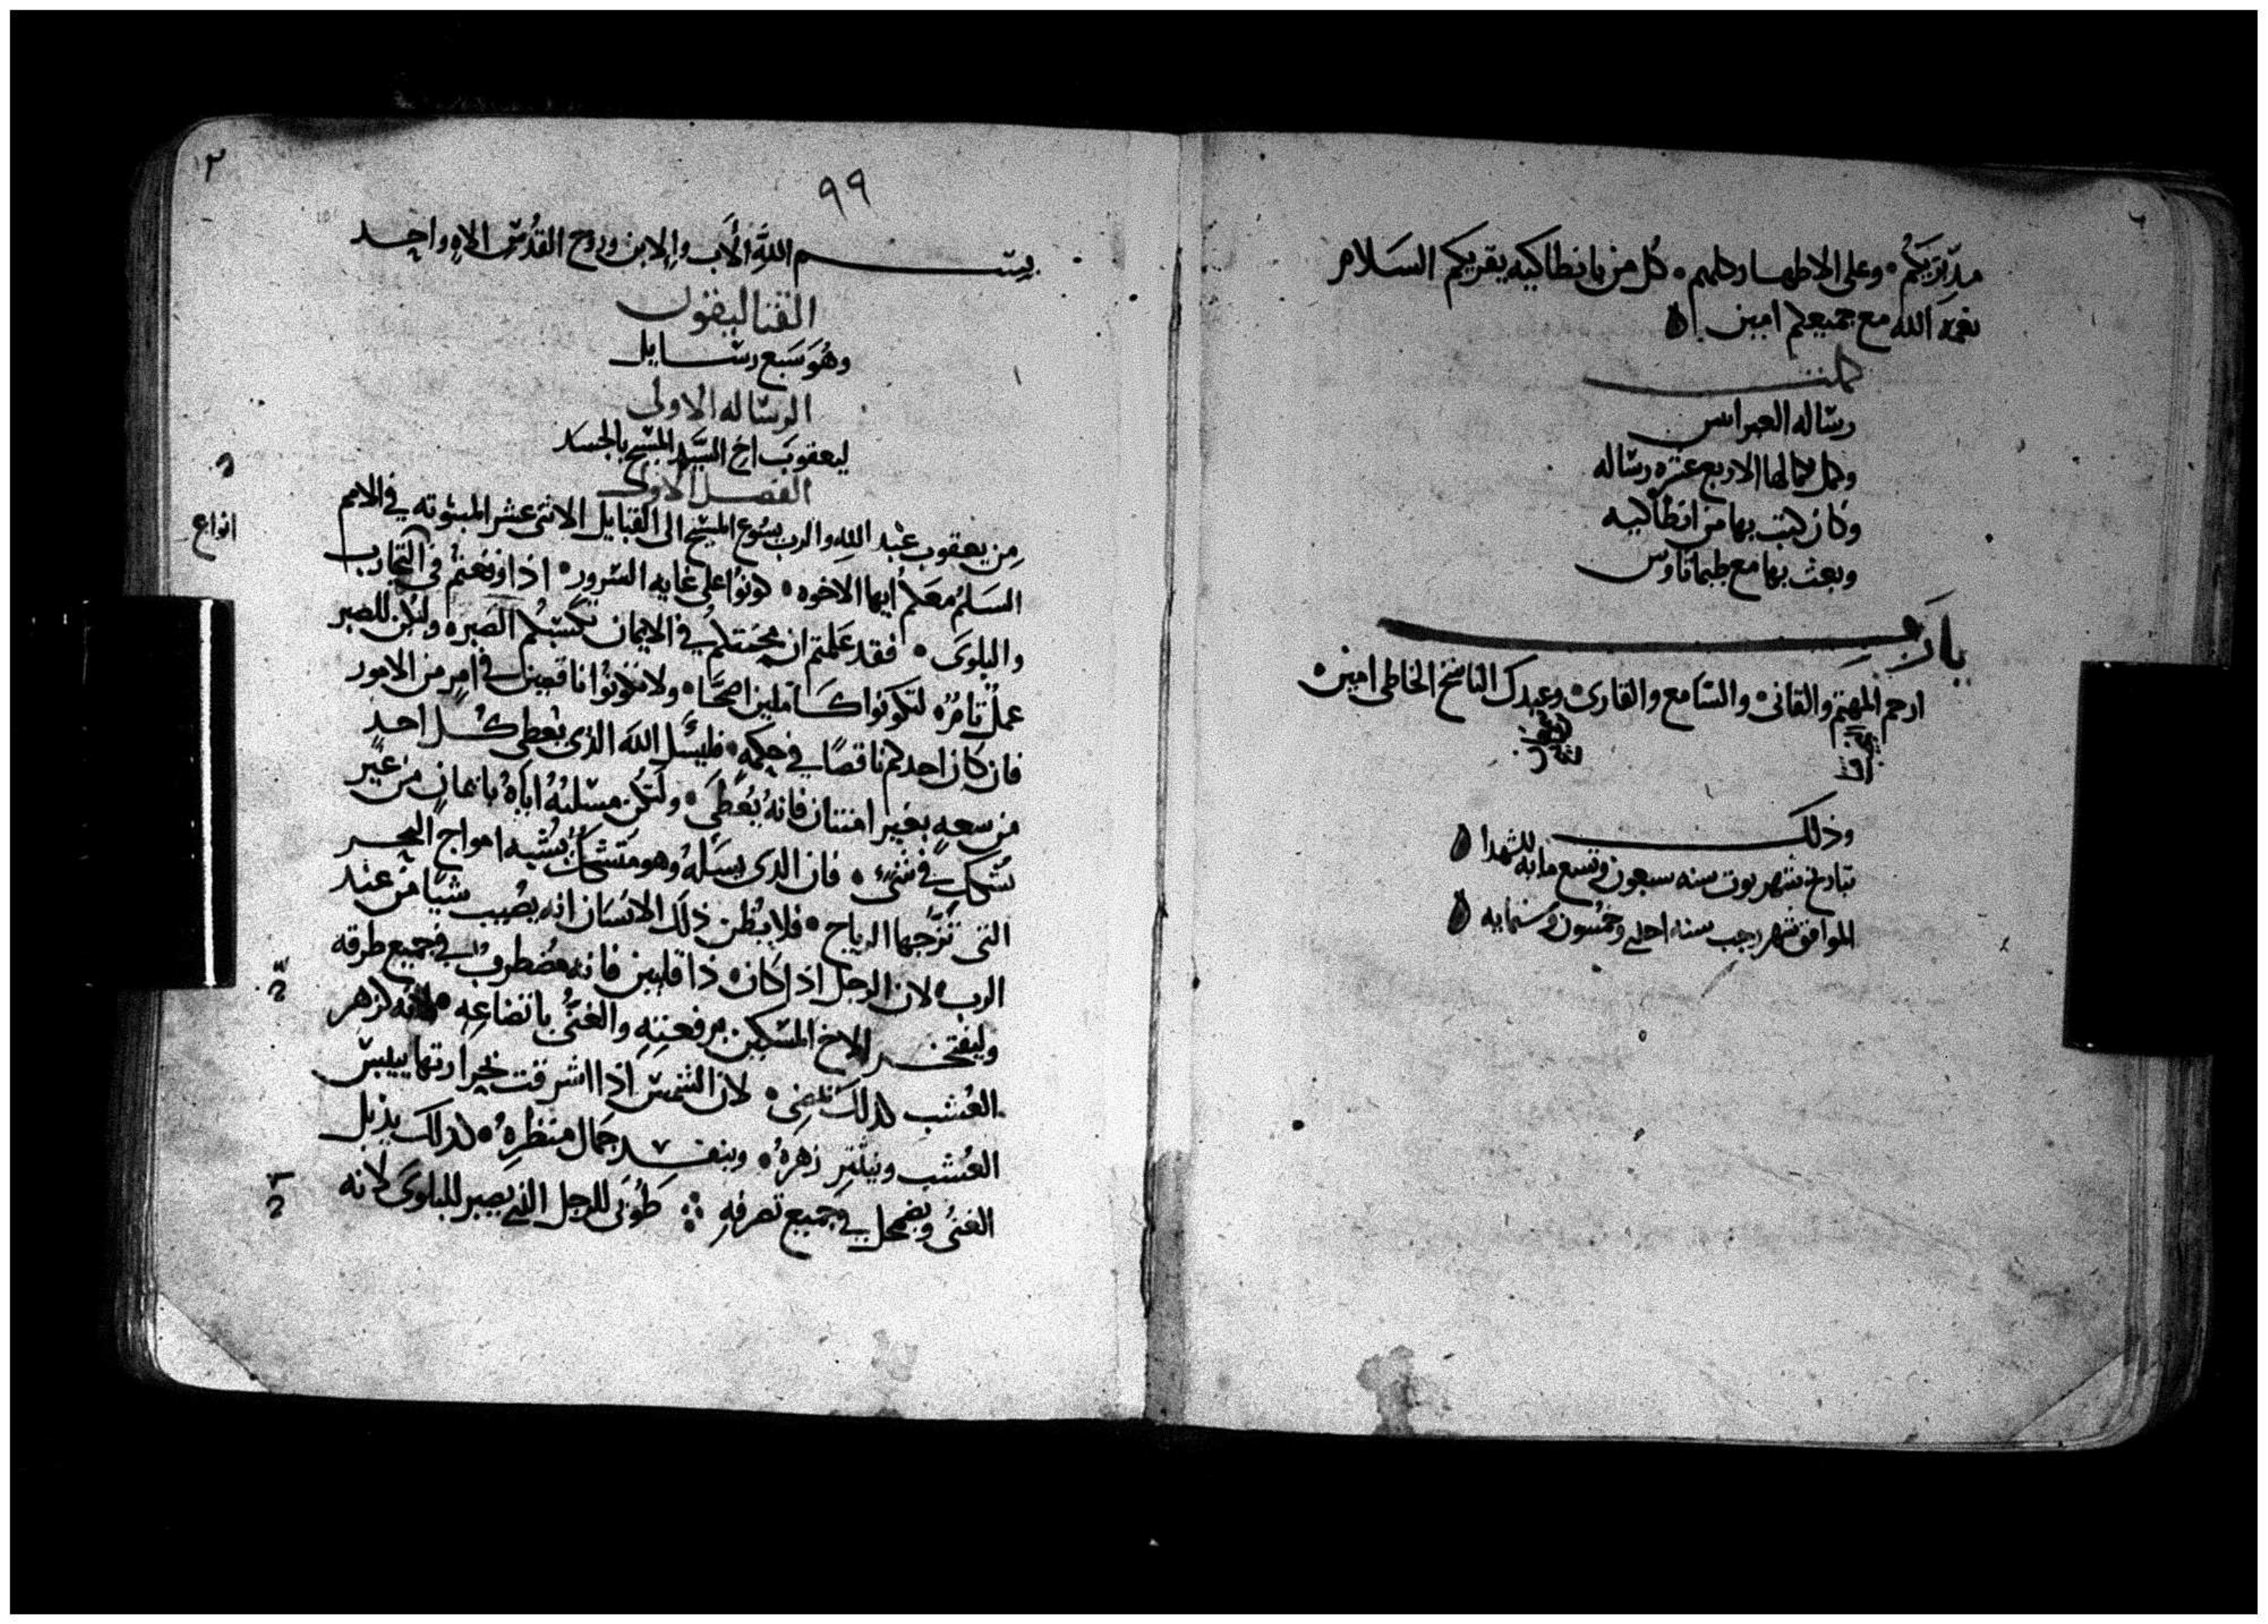 مدبّريكم وعلى الاطهار كلهم كل من بانطاكيه يقريكم السلام
نعمة الله مع جميعكم امين
كملت
رساله العبرانيين
وكمل بكمالها الاربع عشره رساله
وكان كتب بها من انطاكيه
وبعث بها مع طيماتاوس
يا رب
ارحم المهتم والقانى والسامع والقارى وعبدك الناسخ الخاطى امين
وذلك
بتاريخ شهر توت سنه سبعون وتسع مايه للشهدا
الموافق شهر رجب سنه احدى وخمسون وستمايه
٩٩
بسم الله الاب والابن وروح القدس الاه واحد
القتاليقون
وهو سبع رسايل
الرساله الاولى
ليعقوب اخ السيد المسيح بالجسد
الفصل الاول
من يعقوب عبد الله والرب يسوع المسيح الى القبايل الاثنى عشر المبثوثه في الامم
انواع
السلم معكم ايها الاخوه كونوا على غايه السرور اذا وقعتم في التجارب
والبلوى فقد علمتم ان محنتكم في الايمان تكسبكم الصبر وليكن للصبر
عمل تام لتكونوا كاملين اصحا ولا تكونوا ناقصين في امر من الامور
فان كان احدكم ناقصا في حكمه فليسل الله الذى يعطى كل احد
من سعه بغير امتنان فانه يعطى ولتكن مسلته اياه بايمان من غير
تشكك في شيء فان الذى يسله وهو متشكك يشبه امواج البحر
التى تزجها الرياح فلا يظن ذلك الانسان انه يصيب شيا من عند
الرب لان الرجل اذا كان ذا قلبين فانه مضطرب في جميع طرقه
وليفتخر الاخ المسكين برفعته والغنى باتضاعه لانه كزهر
العشب كذلك يمضى لان الشمس اذا اشرقت بحرارتها ييبس
العشب وينتثر زهره وينفسد جمال منظره كذلك يذبل
الغنى ويضمحل في جميع تصرفه طوبى للرجل الذى يصبر للبلوى لانه